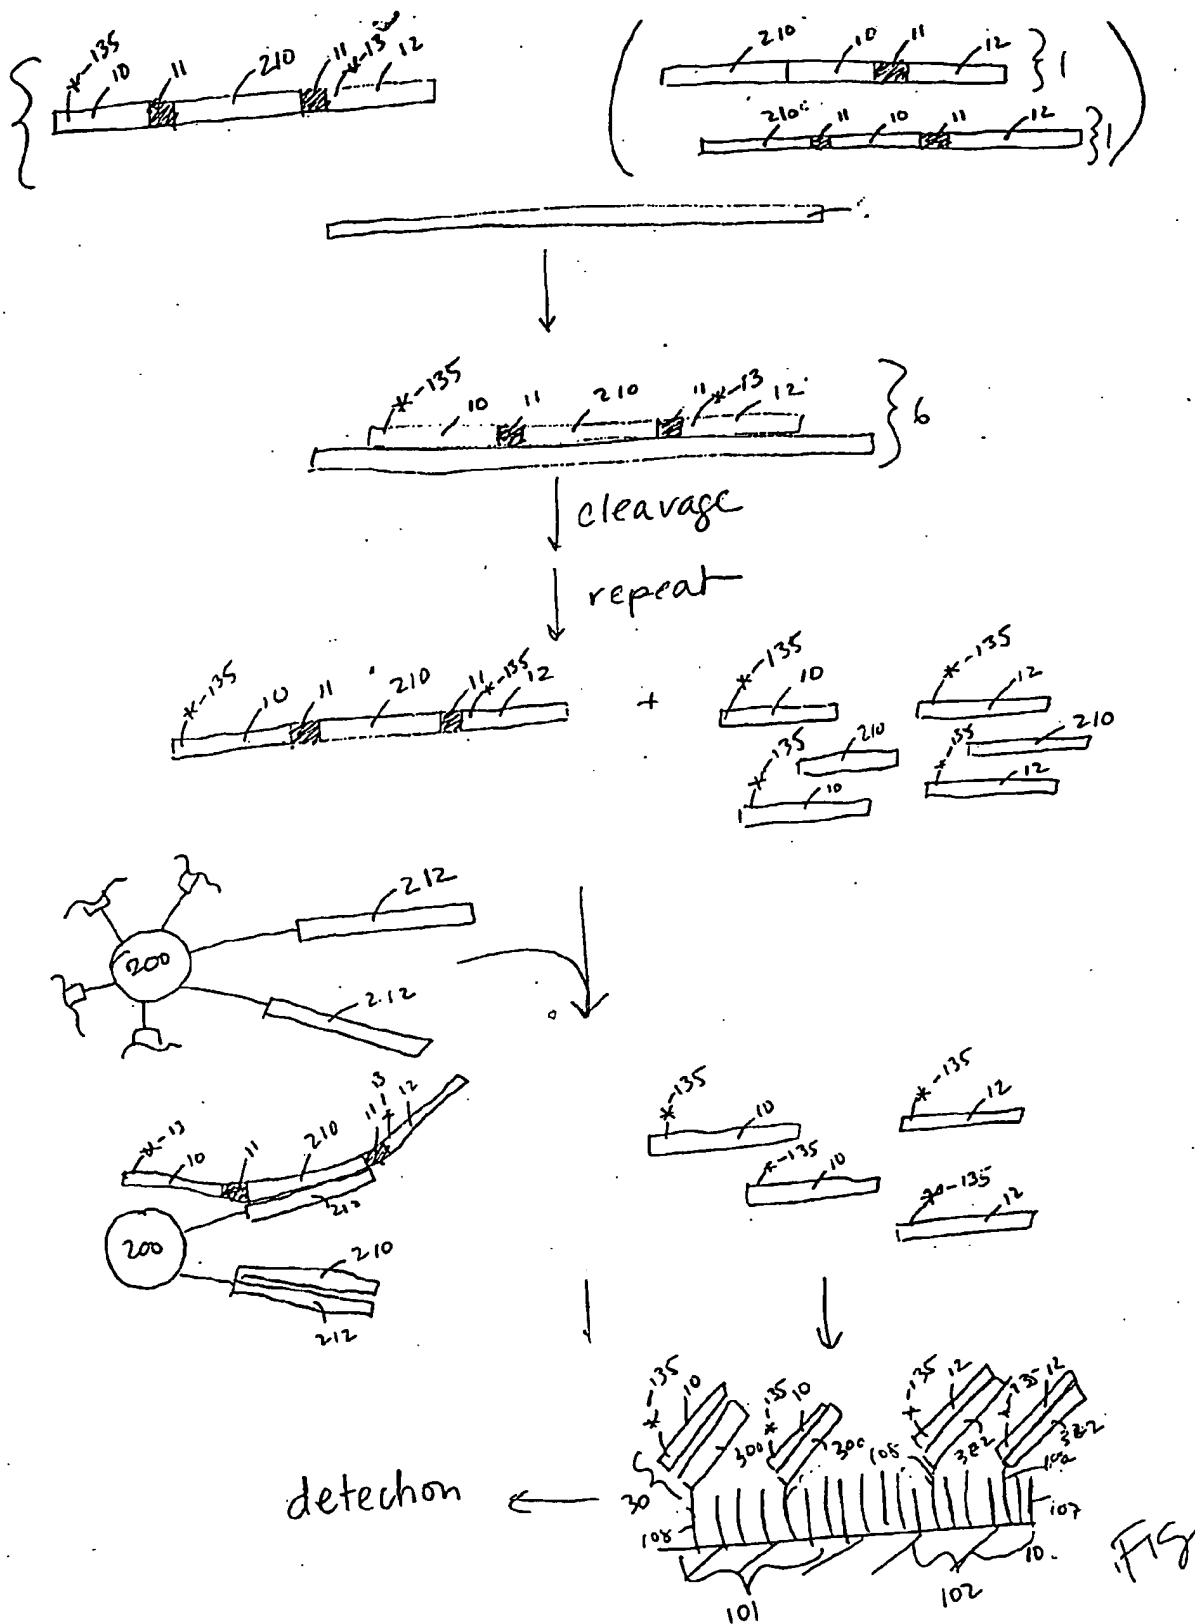 *-135 10 11 210 11 *-13 12
210 10 11 12 } 1
210 11 10 11 12 } 1
*-135 10 11 210 11 *-13 12 } 6
cleavage
repeat
*-135 10 11 210 11 *-135 12 + *-135 10 *-135 12
*-135 210 10 *-135 210 12
212
200
212
*-13 10 11 210 11 13 12
212
200
210
212
*-135 10 *-135 12
*-135 10 *-135 12
*-135 10 *-135 10 *-135 12 *-135 12
300 300 108 322 322
30
108 107
detection
101 102 10
FIG